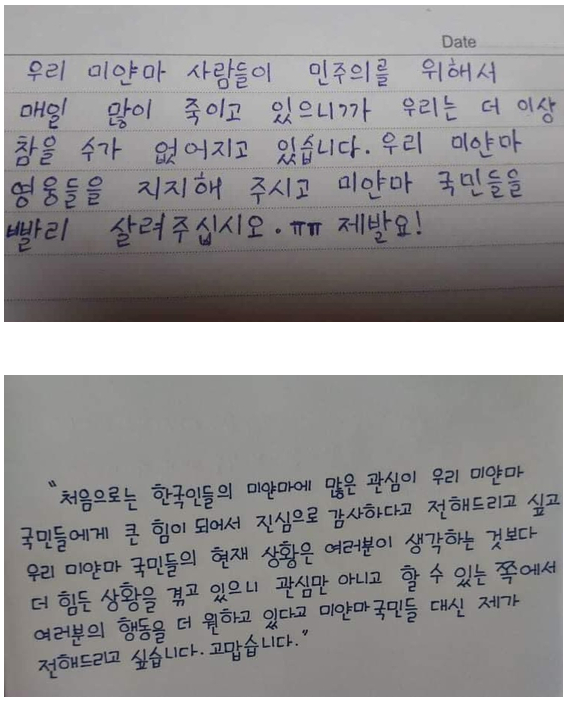 Date
우리 미얀마 사람들이 민주의를 위해서
매일 많이 죽이고 있으니까 우리는 더 이상
참을 수가 없어지고 있습니다. 우리 미얀마
영웅들을 지지해 주시고 미얀마 국민들을
빨리 살려주십시오. ㅠㅠ 제발요!
"처음으로는 한국인들의 미얀마에 많은 관심이 우리 미얀마
국민들에게 큰 힘이 되어서 진심으로 감사하다고 전해드리고 싶고
우리 미얀마 국민들의 현재 상황은 여러분이 생각하는 것보다
더 힘든 상황을 겪고 있으니 관심만 아니고 할 수 있는 쪽에서
여러분의 행동을 더 원하고 있다고 미얀마국민들 대신 제가
전해드리고 싶습니다. 고맙습니다."